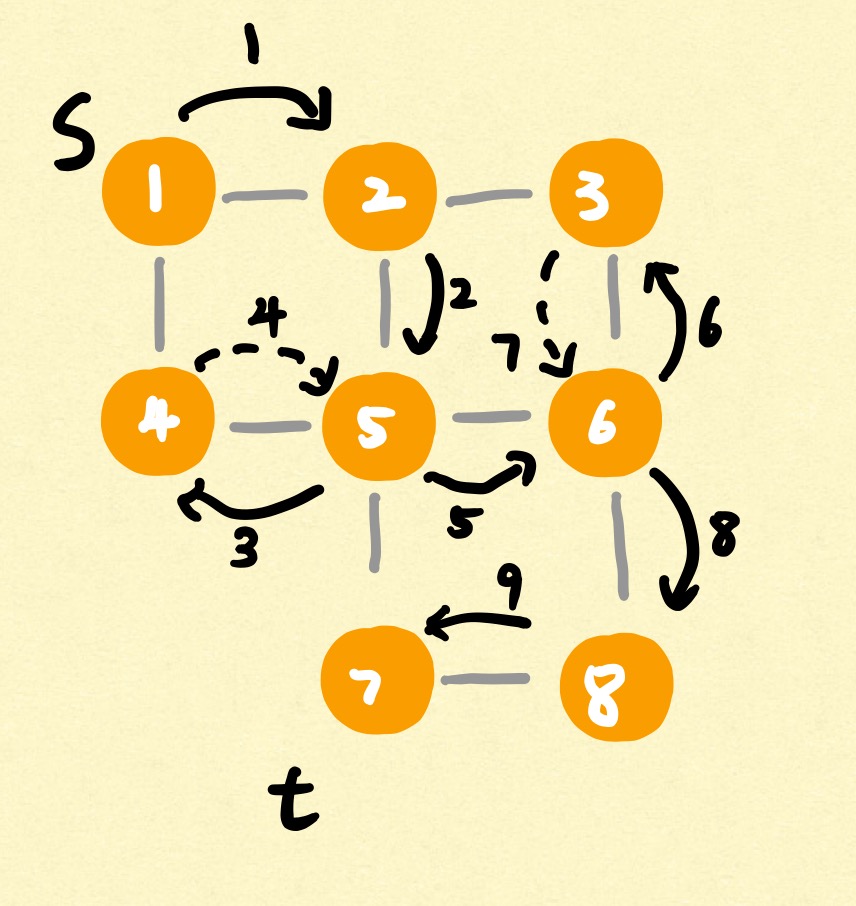 1
S
1 2 3
2
4 7 6
4 5 6
3 5 8
9
7 8
t